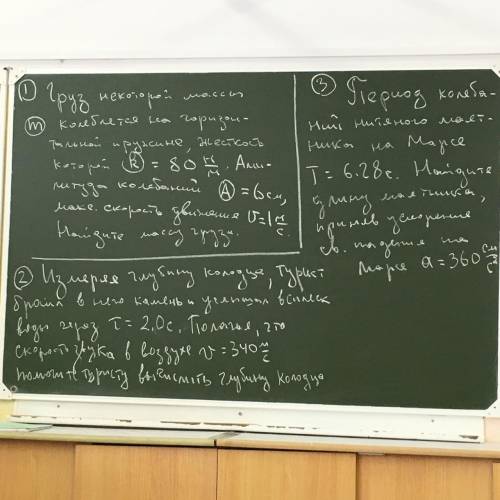 ① Груз некоторой массы
ⓜ колеблется на горизон-
тальной пружине, жесткость
которой ⓚ = 80 Н/м. Амп-
литуда колебаний Ⓐ = 6 см,
макс. скорость движения v = 1 м/с.
Найдите массу груза.
② Измеряя глубину колодца, турист
бросил в него камень и услышал всплеск
воды через τ = 2,0 с. Полагая, что
скорость звука в воздухе v = 340 м/с
помогите туристу вычислить глубину колодца
③ Период колеба-
ний нитяного маят-
ника на Марсе
T = 6.28 с. Найдите
длину маятника,
приняв ускорение
св. падения на
Марсе a = 360 см/с²